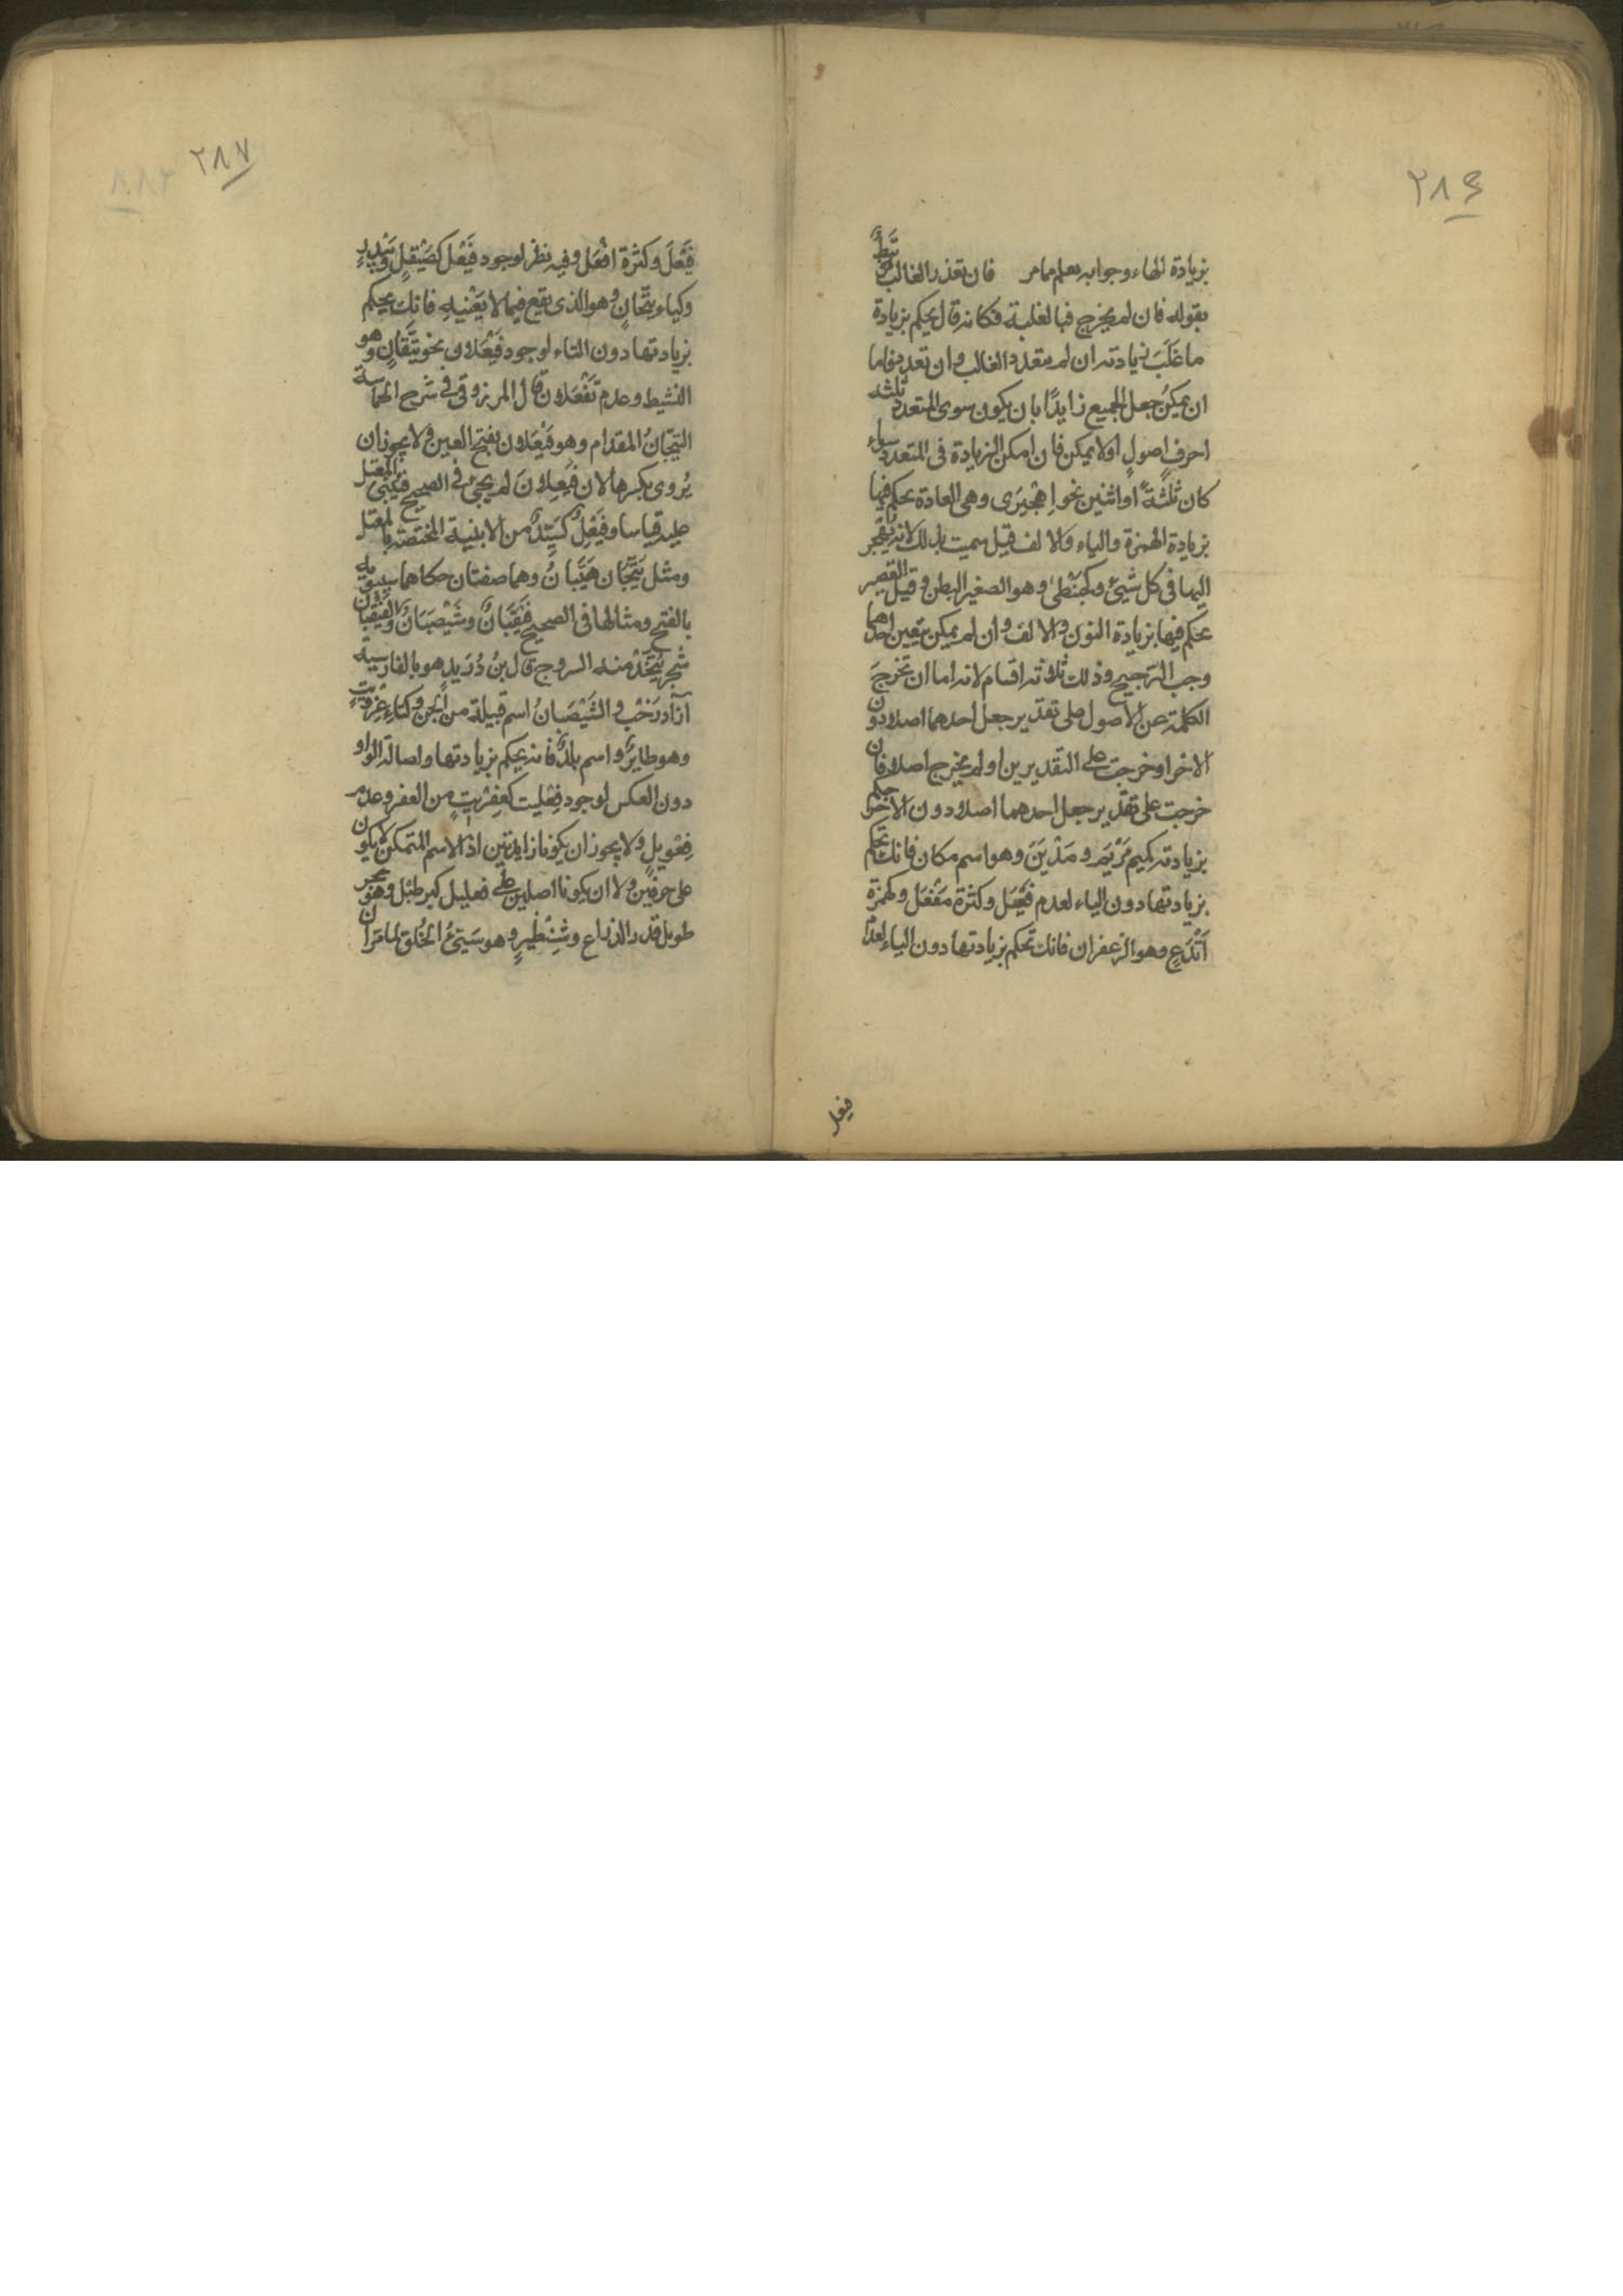 ٢٨٤
بزيادة الهاء وجوابه يعلم مما مر فان تعذر الغالب مرتبط
بقوله فان لم يخرج فبالغلبة فكانه قال يحكم بزيادة
ما غَلَبَ زيادته ان لم يتعدد الغالب وان تعدد فاما
ان يمكن جعل الجميع زايدًا بان يكون سوى المتعدد ثلثة
احرف اصول او لا يمكن فان امكن الزيادة فى المتعدد سواء
كان ثلثةً او اثنين نحو اِهْجِيرَى وهى العادة يحكم فيها
بزيادة الهمزة والياء والالف قيل سميت بذلك لانه يهجر
اليها فى كل شيئ وكحَبَنْطىً وهو الصغير البطن وقيل القصير
يحكم فيها بزيادة النون والالف وان لم يمكن يتعين احدهما
وجب الترجيح وذلك ثلاثة اقسام لانه اما ان تخرجَ
الكلمة عن الاصول على تقدير جعل احدهما اصلا دون
الاخر او خرجت على التقديرين او لم يخرج اصلا فان
خرجت على تقدير جعل احدهما اصلا دون الاخر حكم
بزيادته كميم مَرْيَم ومَدْيَنَ وهو اسم مكان فانك تحكم
بزيادتها دون الياء لعدم فَعْيَل وكثرة مَفْعَل وكهمزة
اَيْدَعٍ وهو الزعفران فانك تحكم بزيادتها دون الياء لعدم
فيعل
٢٨٧
فَيْعَلَ وكثرة افْعَل وفيه نظر لوجود فَيْعَل كصَيْقَلٍ
وكياء تَيَّحَانٍ وهو الذى يقع فيما لا يَعْنيه فانك يحكم
بزيادتها دون التاء لوجود فَيْعَلان نحو تَيَّقَانٍ وهو
النشيط وعدم تَفْعَلان قال المرزوقى فى شرح الحماسة
التيَّحَانُ المقدام وهو فَيْعَلان بفتح العين ولا يجوز ان
يُروى بكسرها لان فَيْعِلانَ لم يجئ فى الصحيح فيُبْنى المعتل
عليه قياسا وفَيْعِلٌ كسَيِّدٌ من الابنية المختصة بالمعتل
ومثل تَيَّحَان هَيَّبانُ وهما صفتان حكاهما سيبويه
بالفتح ومثالها فى الصحيح قَيْقَبَانٌ وشَيْصَبَانٌ والقَيْقَبَان
شجر يُتخَذ منه السروج قال بنُ دُرَيد هو بالفارسية
آزاد درَخْت والشَيْصَبانُ اسم قبيلة من الجن وكتاءِ عِزْوِيتٍ
وهو طايرٌ واسم بلدٌ فانه يحكم بزيادتها واصالة الواو
دون العكس لوجود فِعْليت كعِفْرِيتٍ من العفر وعدم
فِعْويلٍ ولا يجوز ان يكونا زايدتين اذ الاسم المتمكن لا يكون
على حرفين ولا ان يكونا اصلين على فعليل كبرطيل وهو حجر
طويل قدر الذراع وشِنْظيرٍ وهو سَيّئُ الخُلق لما مَرَّ ان